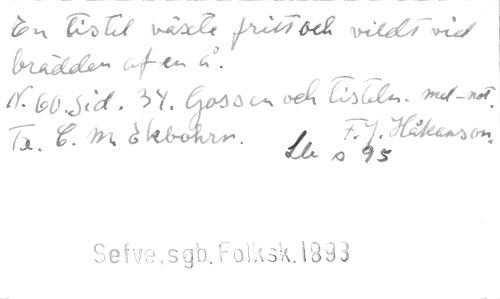 En tistel växte fritt och vildt vid
brädden af en å.
N. 60. Sid. 34. Gossen och tisteln. mel-not.
Te. C. M. Ekbohrn. F. J. Håkanson.
s 95
Sefve.sgb.Folksk.1893